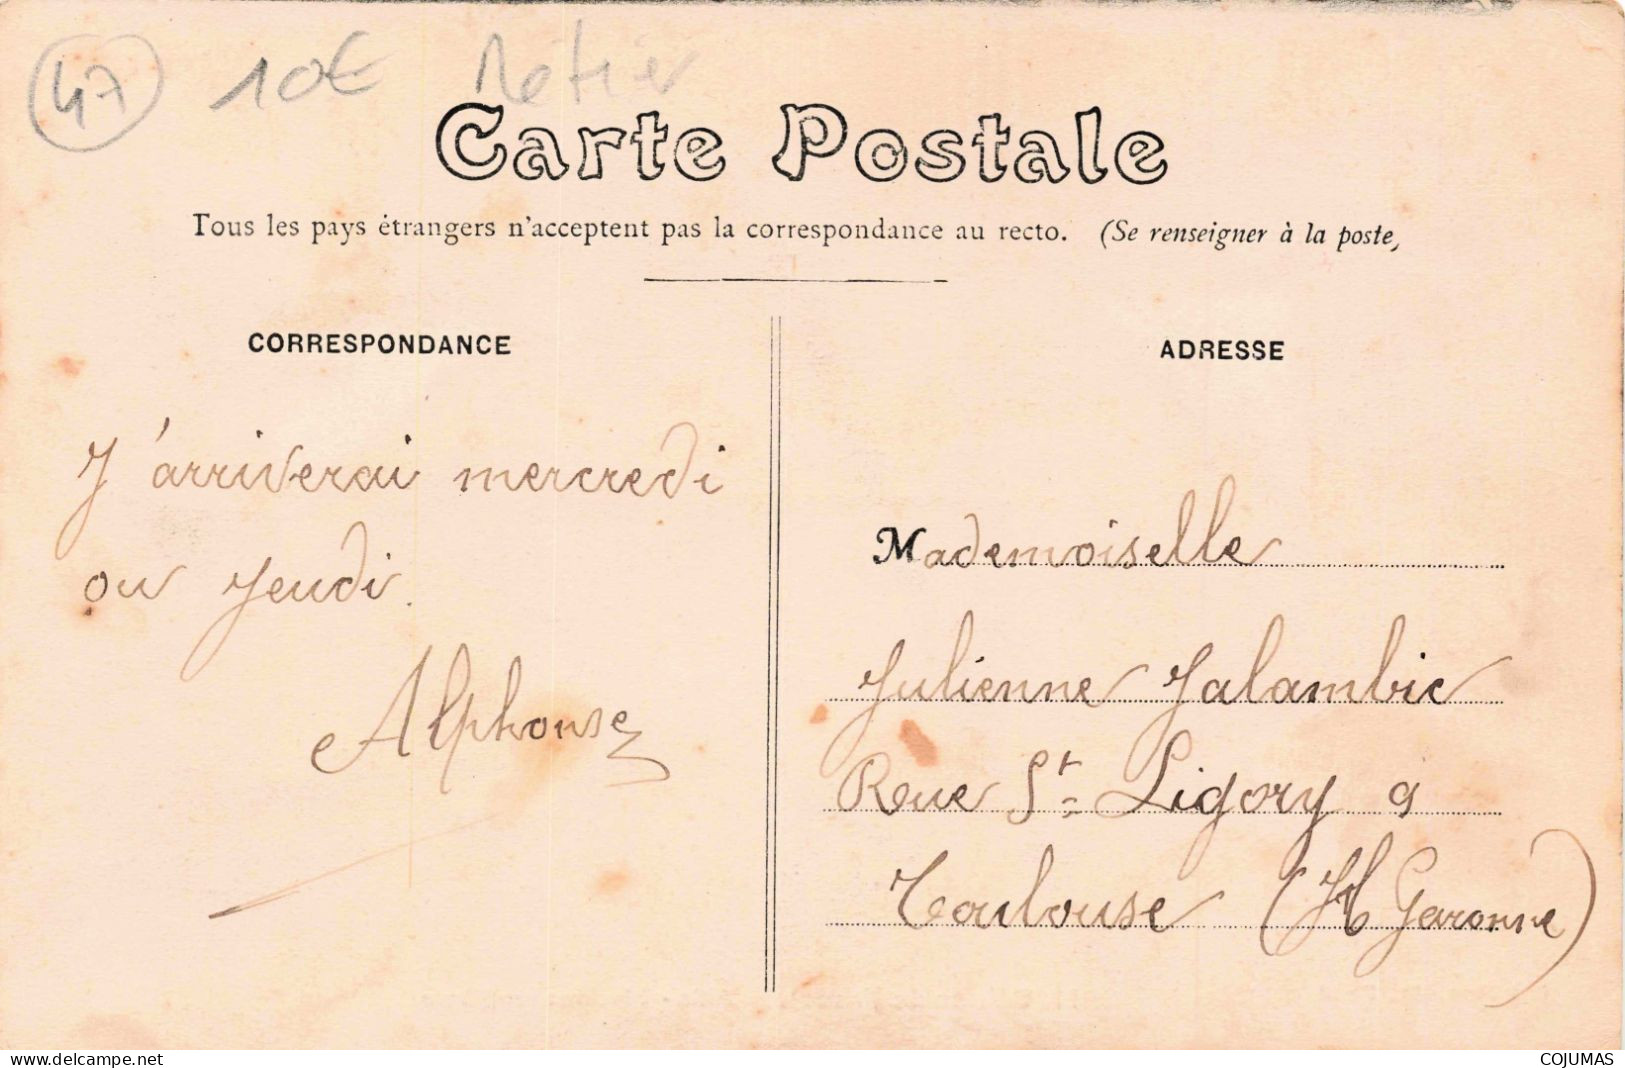 47 10€ Métier
Carte Postale
Tous les pays étrangers n'acceptent pas la correspondance au recto. (Se renseigner à la poste,
CORRESPONDANCE
J'arriverai mercredi
ou Jeudi.
Alphonse
ADRESSE
Mademoiselle
Julienne Jalambic
Rue St- Ligory 9
Toulouse (Hte Garonne)
www.delcampe.net
COJUMAS